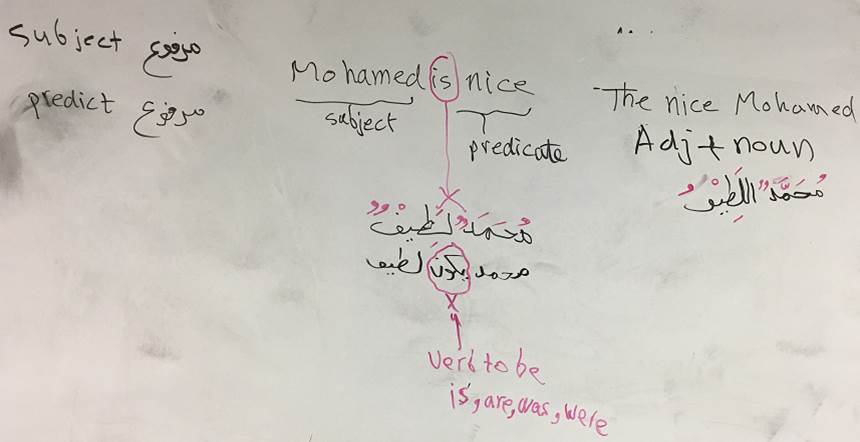 subject مرفوع
predict مرفوع
....
Mohamed is nice
subject
predicate
مُحَمَدٌ لَطِيفٌ
محمد يكون لطيف
X
verb to be
is, are, was, were
The nice Mohamed
Adj + noun
مُحَمَّدٌ اللَطِيْفُ